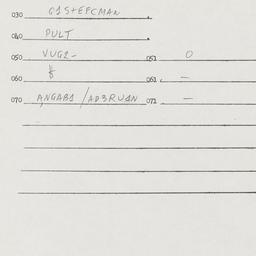 030 G1S+EFCMAN
040 PULT
050 VUG2- 051 0
060 061 -
070 ANGAB1/AD3RUAN 071 -